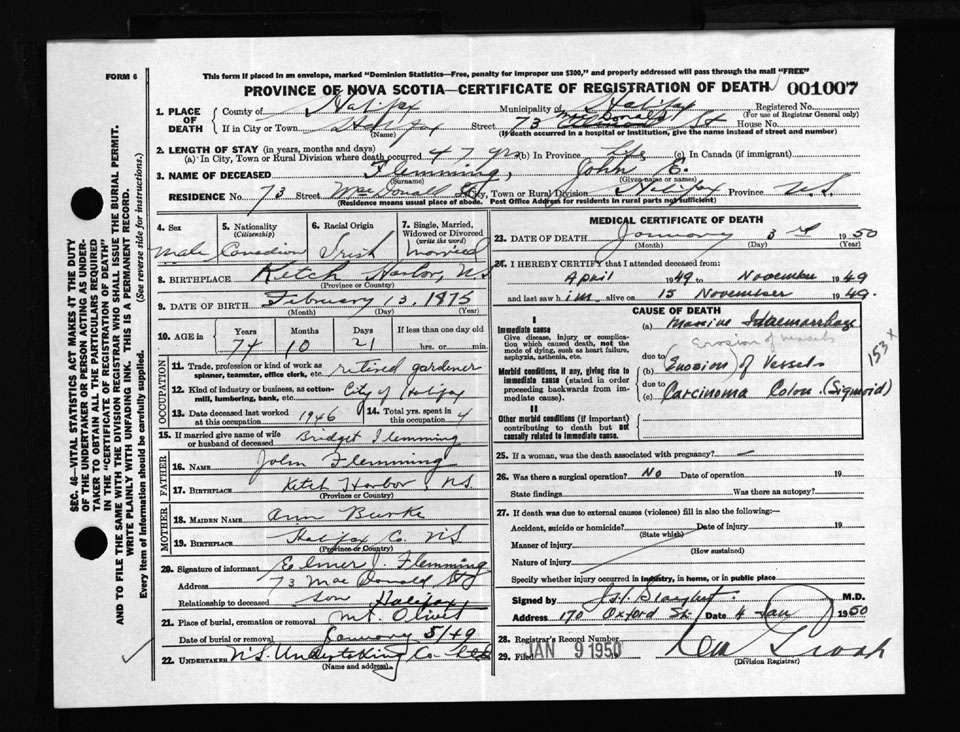 FORM 6
This form if placed in an envelope, marked "Dominion Statistics—Free, penalty for improper use $300," and properly addressed will pass through the mail "FREE"
PROVINCE OF NOVA SCOTIA—CERTIFICATE OF REGISTRATION OF DEATH 001007
SEC. 46—VITAL STATISTICS ACT MAKES IT THE DUTY
OF THE UNDERTAKER OR PERSON ACTING AS UNDER-
TAKER TO OBTAIN ALL THE PARTICULARS REQUIRED
IN THE "CERTIFICATE OF REGISTRATION OF DEATH"
AND TO FILE THE SAME WITH THE DIVISION REGISTRAR WHO SHALL ISSUE THE BURIAL PERMIT.
WRITE PLAINLY WITH UNFADING INK. THIS IS A PERMANENT RECORD.
Every item of information should be carefully supplied. (See reverse side for instructions.)
1. PLACE OF DEATH
County of Halifax Municipality of Halifax Registered No.
(For use of Registrar General only)
If in City or Town Halifax Street 73 MacDonald St House No.
(Name) (If death occurred in a hospital or institution, give the name instead of street and number)
2. LENGTH OF STAY (in years, months and days)
(a) In City, Town or Rural Division where death occurred 47 yrs (b) In Province Life (c) In Canada (if immigrant)
3. NAME OF DECEASED Flemming, John E.
(Surname) (Given name or names)
RESIDENCE No. 73 Street MacDonald St City, Town or Rural Division Halifax Province N.S.
(Residence means usual place of abode. Post Office Address for residents in rural parts not sufficient)
4. Sex
Male
5. Nationality
(Citizenship)
Canadian
6. Racial Origin
Irish
7. Single, Married,
Widowed or Divorced
(write the word)
married
8. BIRTHPLACE Ketch Harbor, N.S
(Province or Country)
9. DATE OF BIRTH February 13, 1875
(Month) (Day) (Year)
10. AGE in Years Months Days If less than one day
74 10 21 hrs. or min.
OCCUPATION
11. Trade, profession or kind of work as
spinner, teamster, office clerk, etc. retired gardener
12. Kind of industry or business, as cotton-
mill, lumbering, bank, etc. City of Halifax
13. Date deceased last worked
at this occupation 1946
14. Total yrs. spent in
this occupation 4
15. If married give name of wife
or husband of deceased Bridget Flemming
FATHER
16. NAME John Flemming
17. BIRTHPLACE Ketch Harbor, N.S.
(Province or Country)
MOTHER
18. MAIDEN NAME Ann Burke
19. BIRTHPLACE Halifax Co. NS
(Province or Country)
20. Signature of informant Elmer J. Flemming
Address 73 MacDonald St
Relationship to deceased son Halifax
21. Place of burial, cremation or removal Mt. Olivet
Date of burial or removal January 5/49
22. UNDERTAKER N.S. Undertaking Co. Ltd
(Name and address)
MEDICAL CERTIFICATE OF DEATH
23. DATE OF DEATH January 3rd 1950
(Month) (Day) (Year)
24. I HEREBY CERTIFY that I attended deceased from:
April 1949 to November 1949
and last saw him alive on 15 November 1949.
CAUSE OF DEATH
I
Immediate cause
Give disease, injury or compli-
cation which caused death, not the
mode of dying, such as heart failure,
asphyxia, asthenia, etc.
(a) Massive Haemorrhage
Erosion of vessels
Morbid conditions, if any, giving rise to
immediate cause (stated in order
proceeding backwards from im-
mediate cause).
due to
(b) (Erosion) of Vessels
due to
(c) Carcinoma Colon (Sigmoid)
153 x
II
Other morbid conditions (if important)
contributing to death but not
causally related to immediate cause.
25. If a woman, was the death associated with pregnancy? —
26. Was there a surgical operation? No Date of operation 19
State findings Was there an autopsy?
27. If death was due to external causes (violence) fill in also the following:—
Accident, suicide or homicide? Date of injury 19
(State which)
Manner of injury
(How sustained)
Nature of injury
Specify whether injury occurred in industry, in home, or in public place
Signed by M.D.
Address 170 Oxford St. Date 4 Jan 1950
28. Registrar's Record Number
29. Filed JAN 9 1950
(Division Registrar)